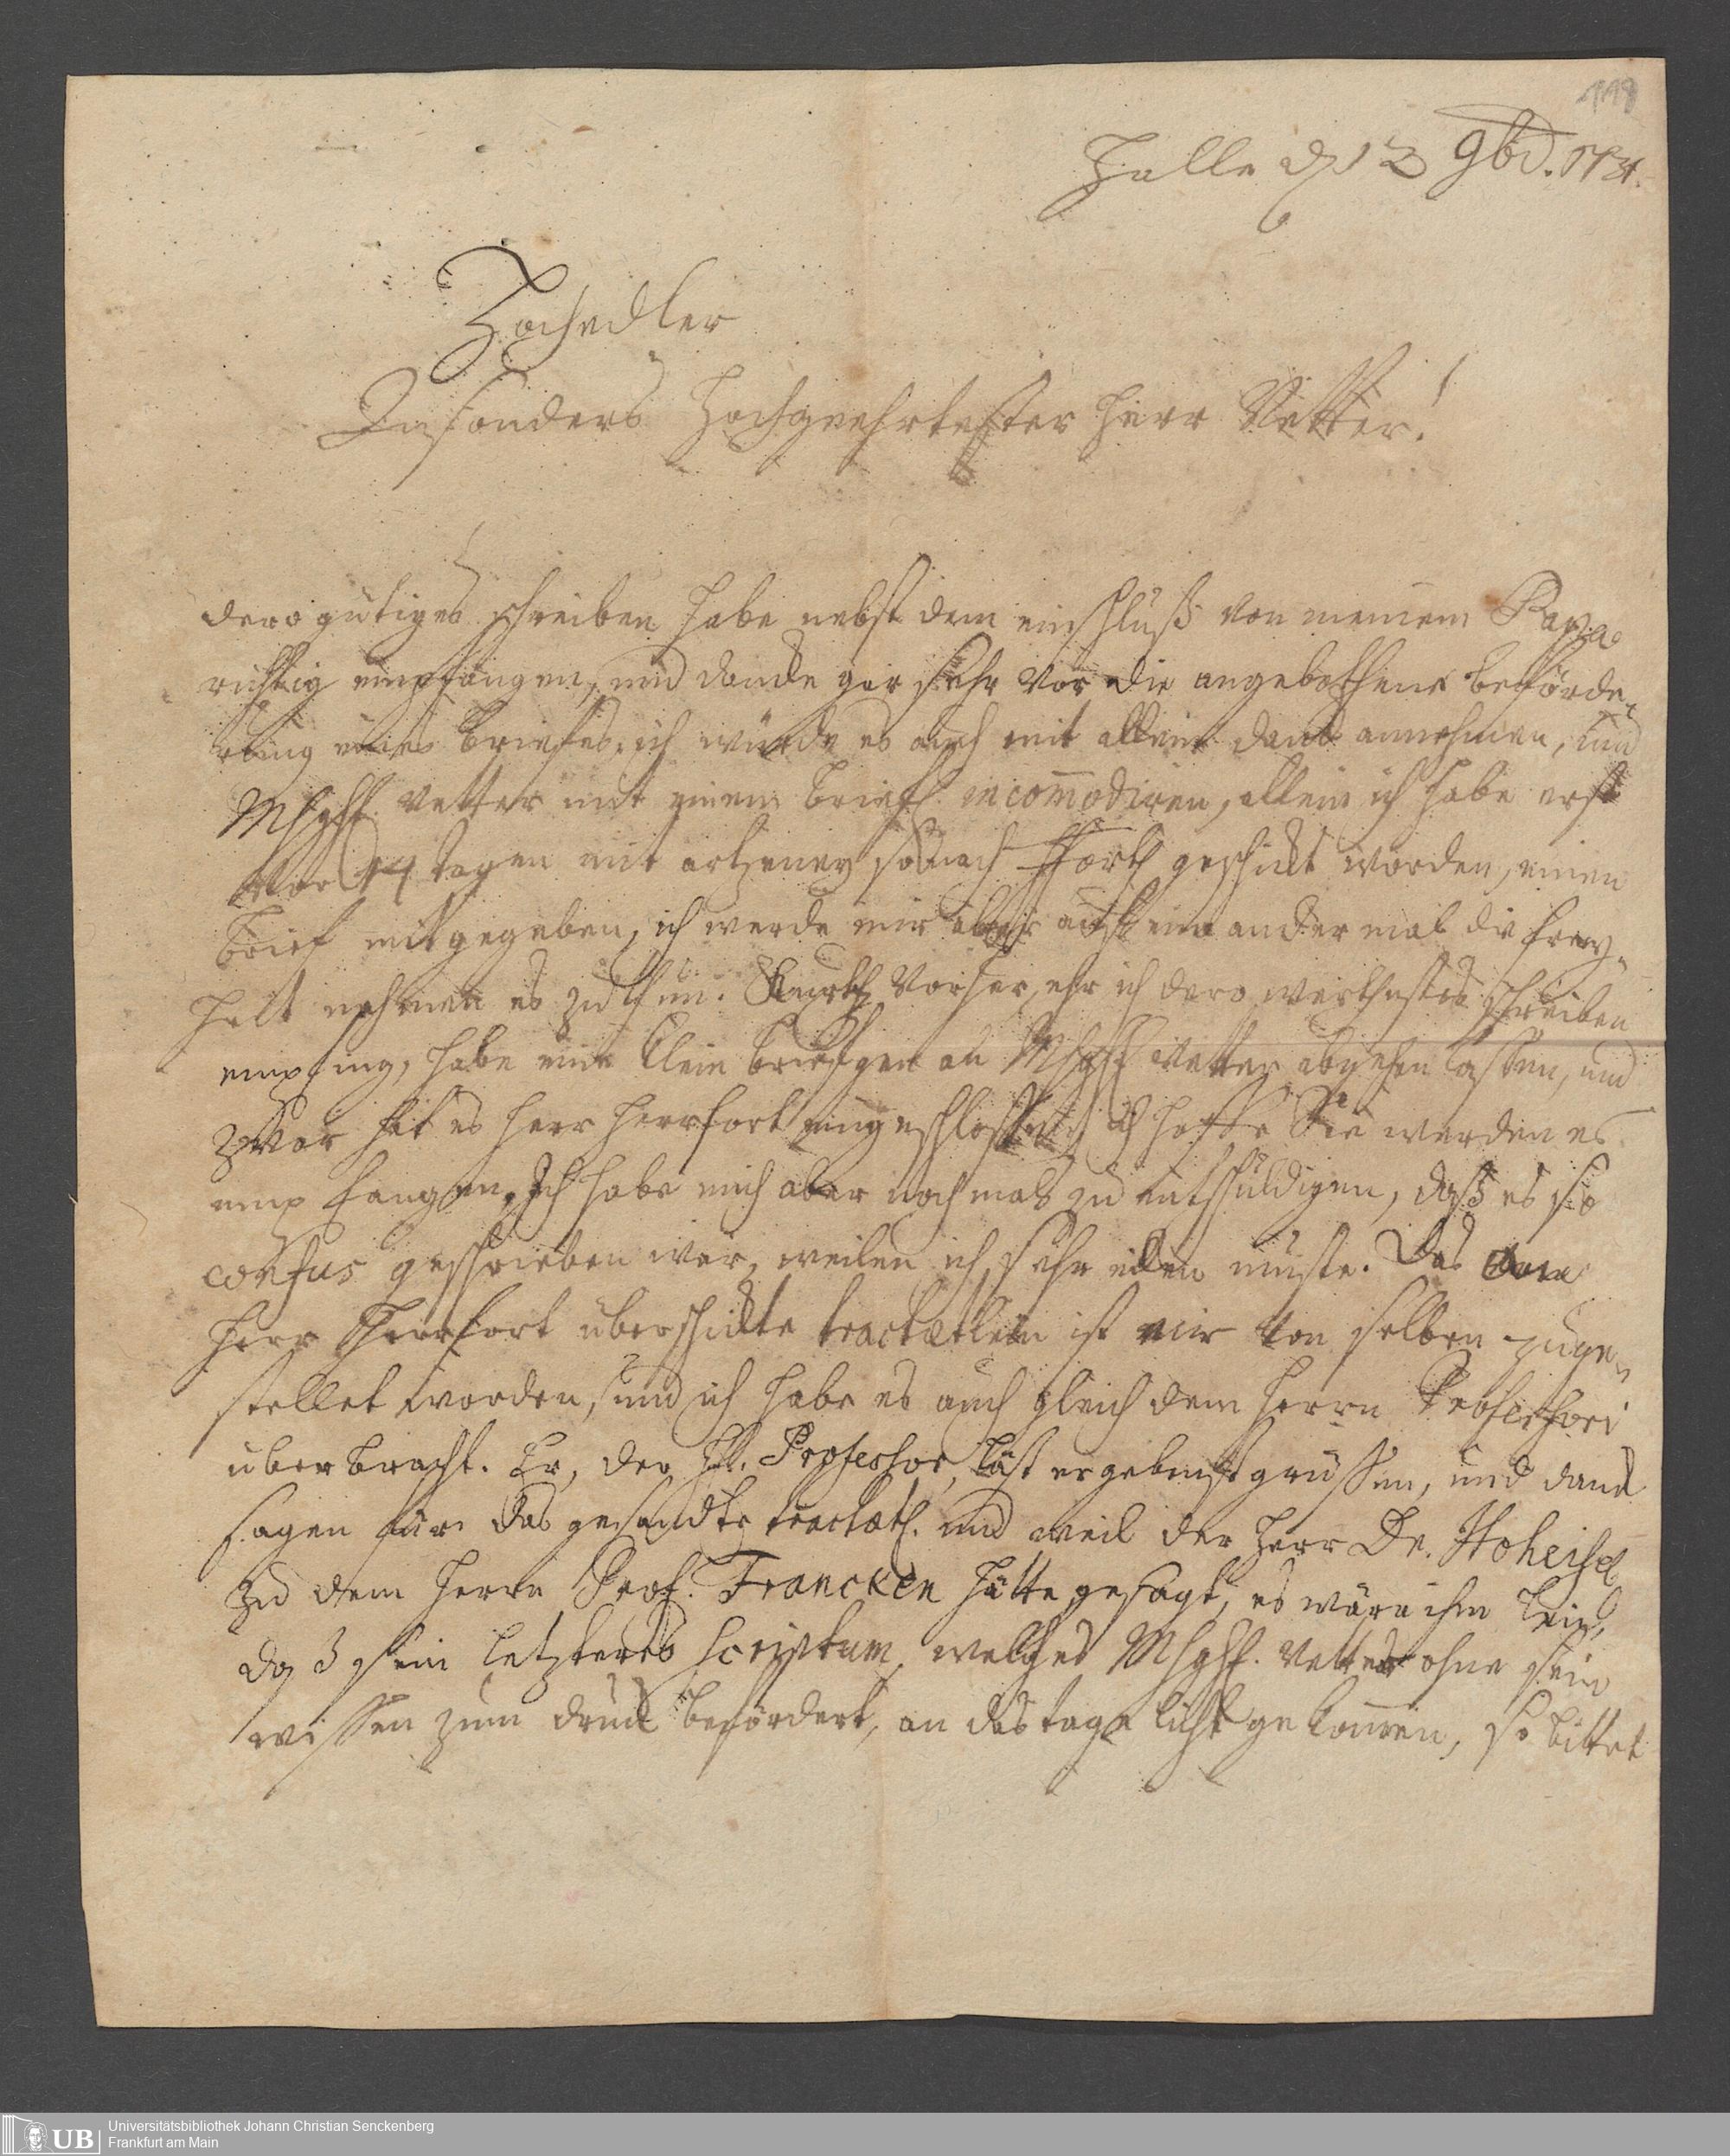 118
Halle d 12 9bd. 1731.
Hochedler
Insonders Hochgeehrtester Herr Vetter!
dero gütiges schreiben habe nebst dem einschluß von meinem Papa
richtig empfangen, und dancke gar sehr vor die angebothene beförde-
rung eines briefes, ich würde es auch mit allem danck annehmen, und
Mhghh. Vetter mit einem brieff incom̄odiren, allein ich habe erst
vor 14 tagen mit artzeney so nach geschickt worden, einen
brief mitgegeben, ich werde mir aber auf ein ander mal die frey-
heit nehmen es zu thun. Kurtz vorher, ehe ich dero werthestes schreiben
empfing, habe ein klein briefgen an Mhghh Vetter abgehen lassen, und
zwar hat es Herr Herrfort eingeschlossen, ich hoffe Sie werden es
empfangen. Ich habe mich aber nochmals zu entschuldigen, daß es so
confus geschrieben war, weilen ich sehr eilen muste. Das
Herr Herrfort überschickte tractætlein ist mir von selben zuge-
stellet worden, und ich habe es auch gleich dem Herrn Professori
überbracht. Er, der H. Professor, läst ergebenst grüssen, und danck
sagen für das gesandte tractætl. und weil der Herr Dr. Hoheisel
zu dem Herrn Prof. Francken hätte gesagt, es wäre ihm leid,
daß sein letzteres scriptum, welches Mhghh. Vetter ohne sein
wissen zum druck befördert, an das tage licht gekom̄en, so bittet
UB
Universitätsbibliothek Johann Christian Senckenberg
Frankfurt am Main